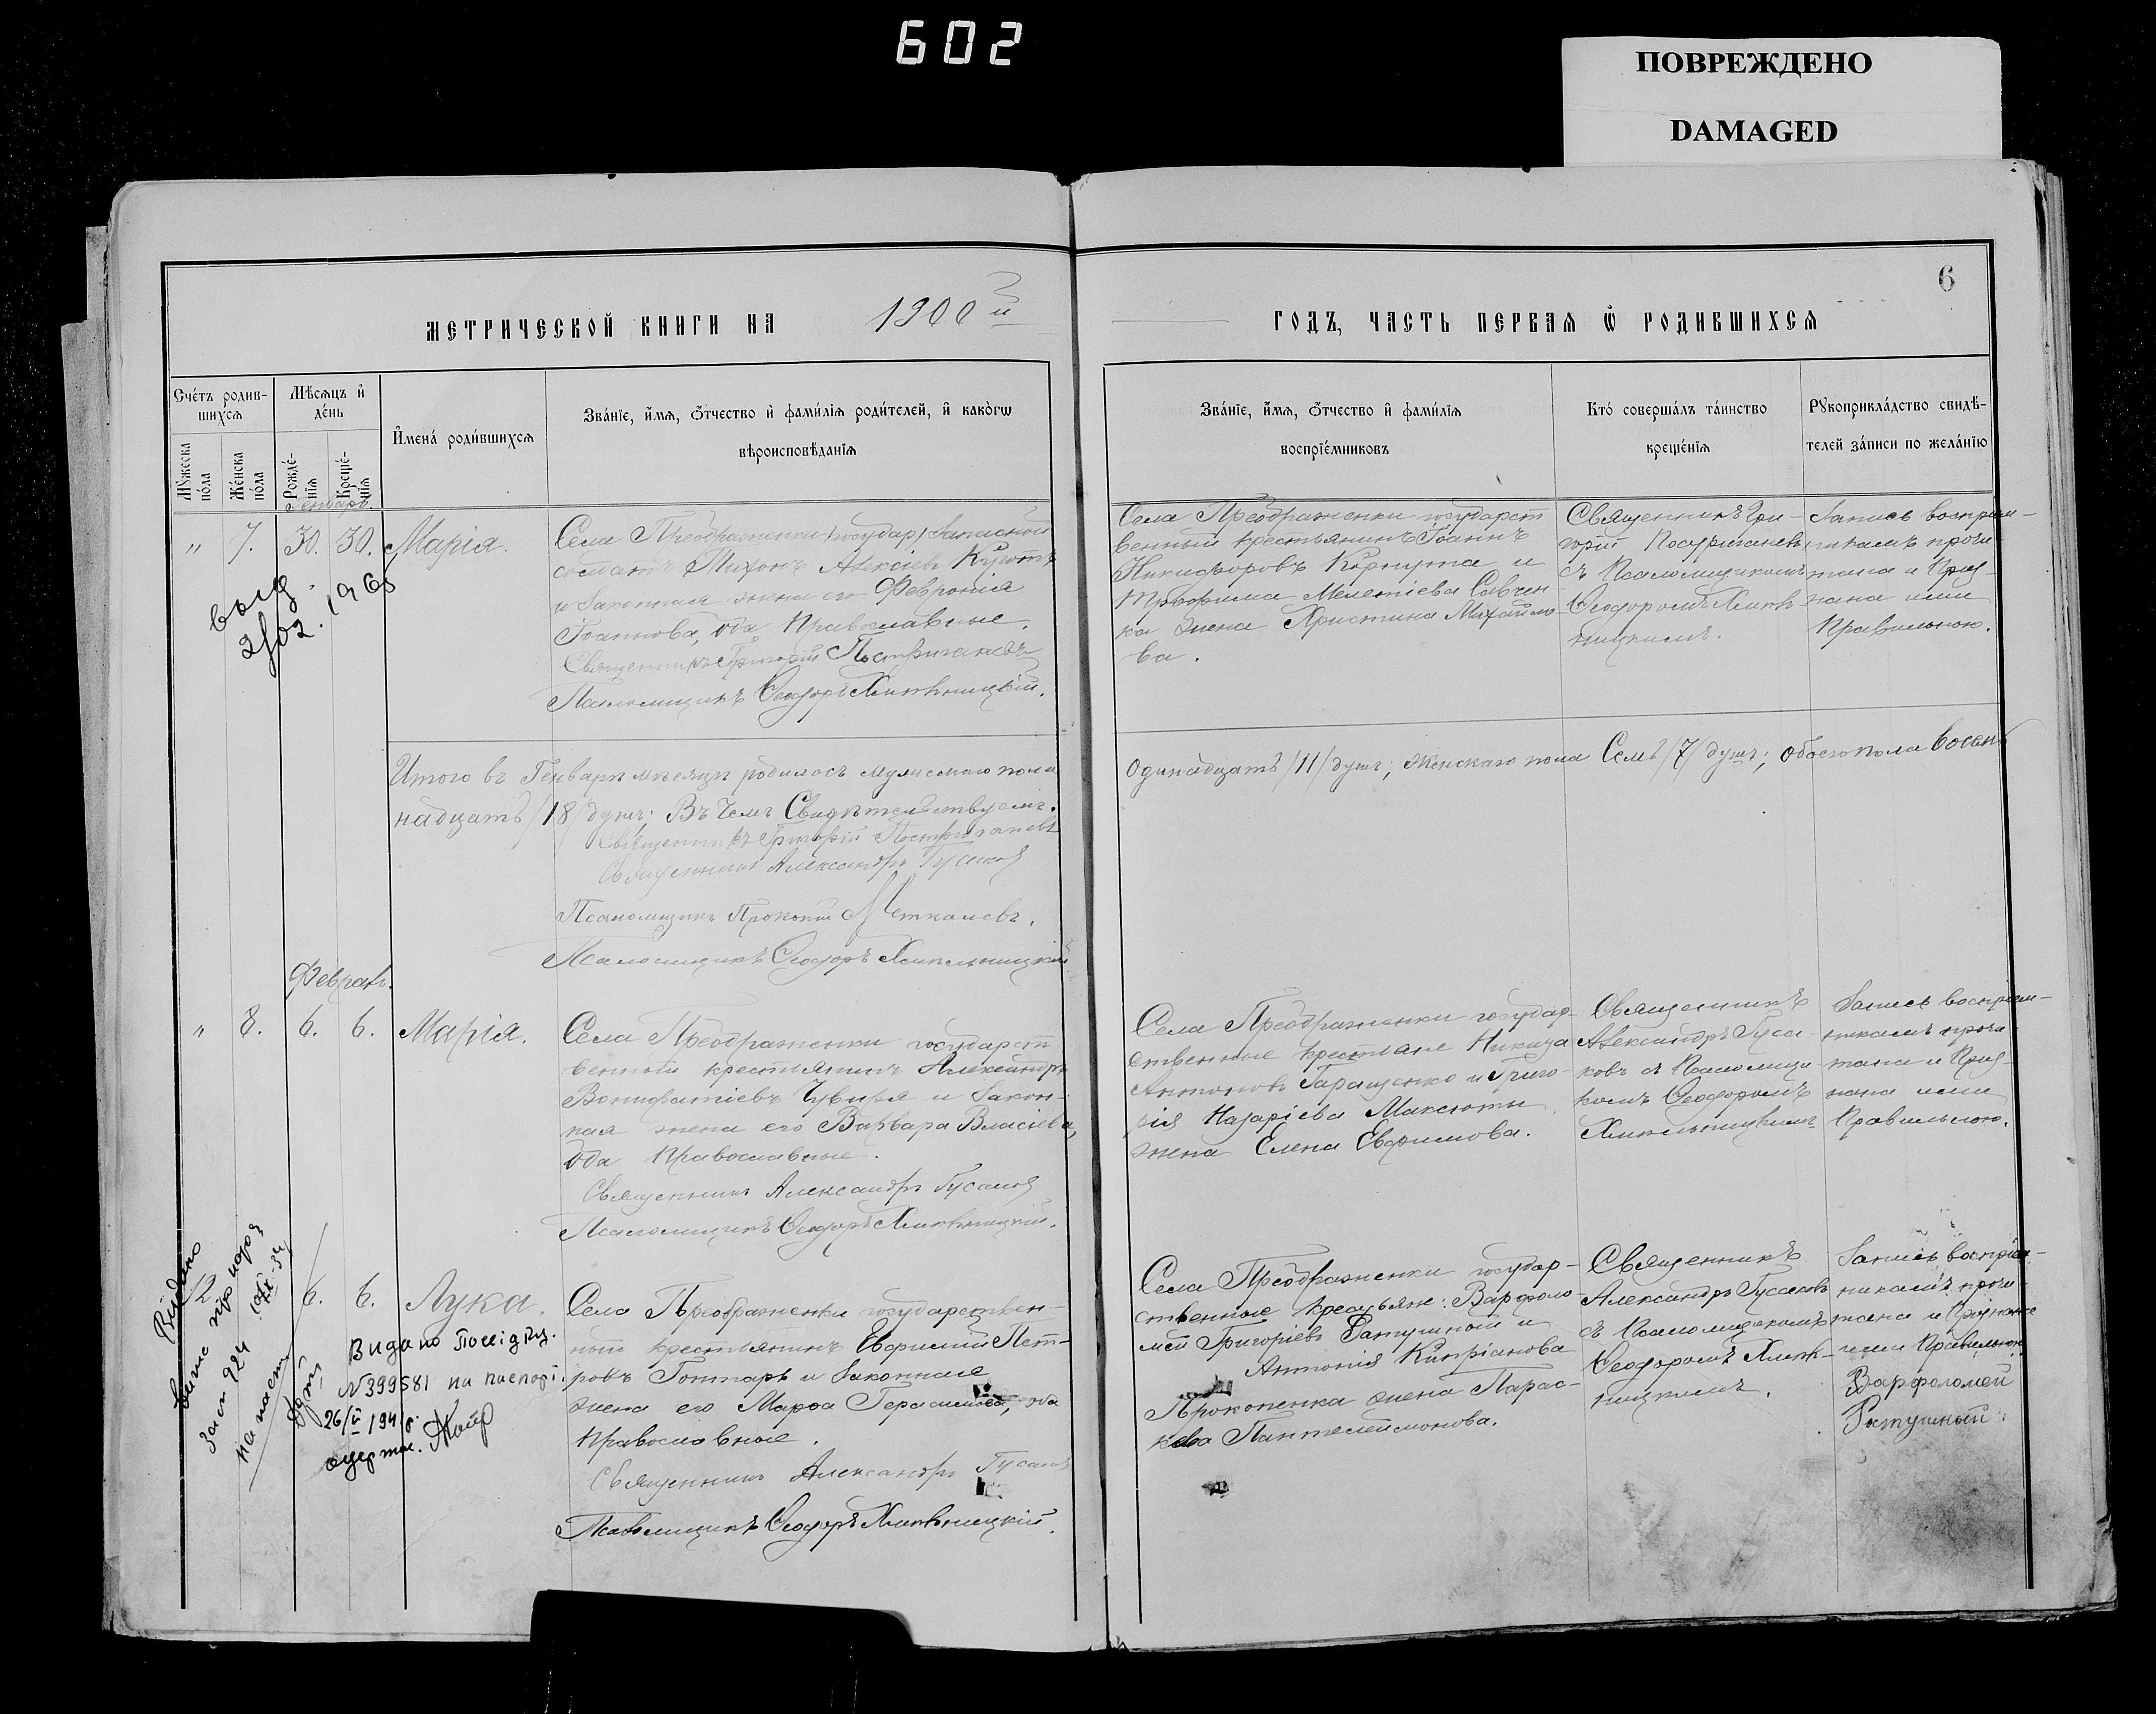 602
ПОВРЕЖДЕНО
DAMAGED
6
МЕТРИЧЕСКОЙ КНИГИ НА 1900й
ГОДЪ, ЧАСТЬ ПЕРВАЯ Ѿ РОДИВШИХСЯ
Счетъ родив-
шихся
Мѣсяцъ и
день
Имена родившихся
Званіе, имя, отчество и фамилія родителей, и какогѡ
вѣроисповѣданія
Мужеска
пола
Женска
пола
Рожде-
нія
Креще-
нія
Званіе, имя, отчество и фамилія
воспріемниковъ
Кто совершалъ таинство
крещенія
Рукоприкладство свидѣ-
телей записи по желанію
Генварь.
" 7. 30. 30. Марія.
Села Преображенки /государ/ Запасной
солдатъ Алексіевъ
и Законная жена его Феврония
Іоаннова, оба Православные.
Священникъ Григорій Постригачевъ
Псаломщикъ Ѳеодоръ Хмельницкій.
выд.
1965
Села Преображенки государст
венный крестьянинъ Іоаннъ
Никифоровъ Корнута и
Трофима Мелетіева Савчен
ка жена Христина Михайло
ва.
Священникъ Гри-
горій Постригачевъ
съ Псаломщикомъ
Ѳеодоромъ Хмель-
ницкимъ.
Запись воспріем-
никамъ прочи
тана и Приз-
нана ими
Правильною.
Итого въ Генварѣ мѣсяцѣ родилось мужескаго пола
Одинадцать /11/ душъ; женскаго пола Семь /7/ душъ; обоего пола восемь
надцать /18/ душъ; Въ чемъ Свидѣтельствуемъ.
Священникъ Григорій Постригачевъ
Священникъ Александръ Гусаковъ
Псаломщикъ Прокопій
Псаломщикъ Ѳеодоръ Хмельницкій
Феврал.
" 8. 6. 6. Марія.
Села Преображенки государст
венный крестьянинъ Александръ
Вонифатіевъ Чувиря и Закон-
ная жена его Варвара Власіева,
оба Православные.
Священникъ Александръ Гусаковъ
Псаломщикъ Ѳеодоръ Хмельницкій.
Села Преображенки государ-
ственные крестьяне Никита
Антоновъ Гаращенко и Григо-
рія Назаріева Максюты
жена Елена Евфимова.
Священникъ
Александръ Гуса-
ковъ съ Псаломщи
комъ Ѳеодоромъ
Хмельницкимъ
Запись воспріем-
никамъ прочи
тана и Приз-
нана ими
Правильною.
12 6. 6. Лука.
Села Преображенки государствен-
ный крестьянинъ Евфимій Пет-
ровъ Гонтарь и Законная
жена его Марѳа Герасимова, оба
Православные.
Священникъ Александръ Гусаковъ
Псаломщикъ Ѳеодоръ Хмельницкій.
Видано
924
на паспорт
Видано
N 399581 на паспорт.
26/II 194
Села Преображенки государ-
ственные крестьяне: Варфоло-
мей Григоріевъ Ратушный и
Антонія Кипріанова
Прокопенка жена Парас-
кева Пантелеймонова.
Священникъ
Александръ Гусаковъ
съ Псаломщикомъ
Ѳеодоромъ Хмель-
ницкимъ.
Запись воспріем-
никамъ прочи-
тана и Признана
ими Правильною
Варфоломей
Ратушный.